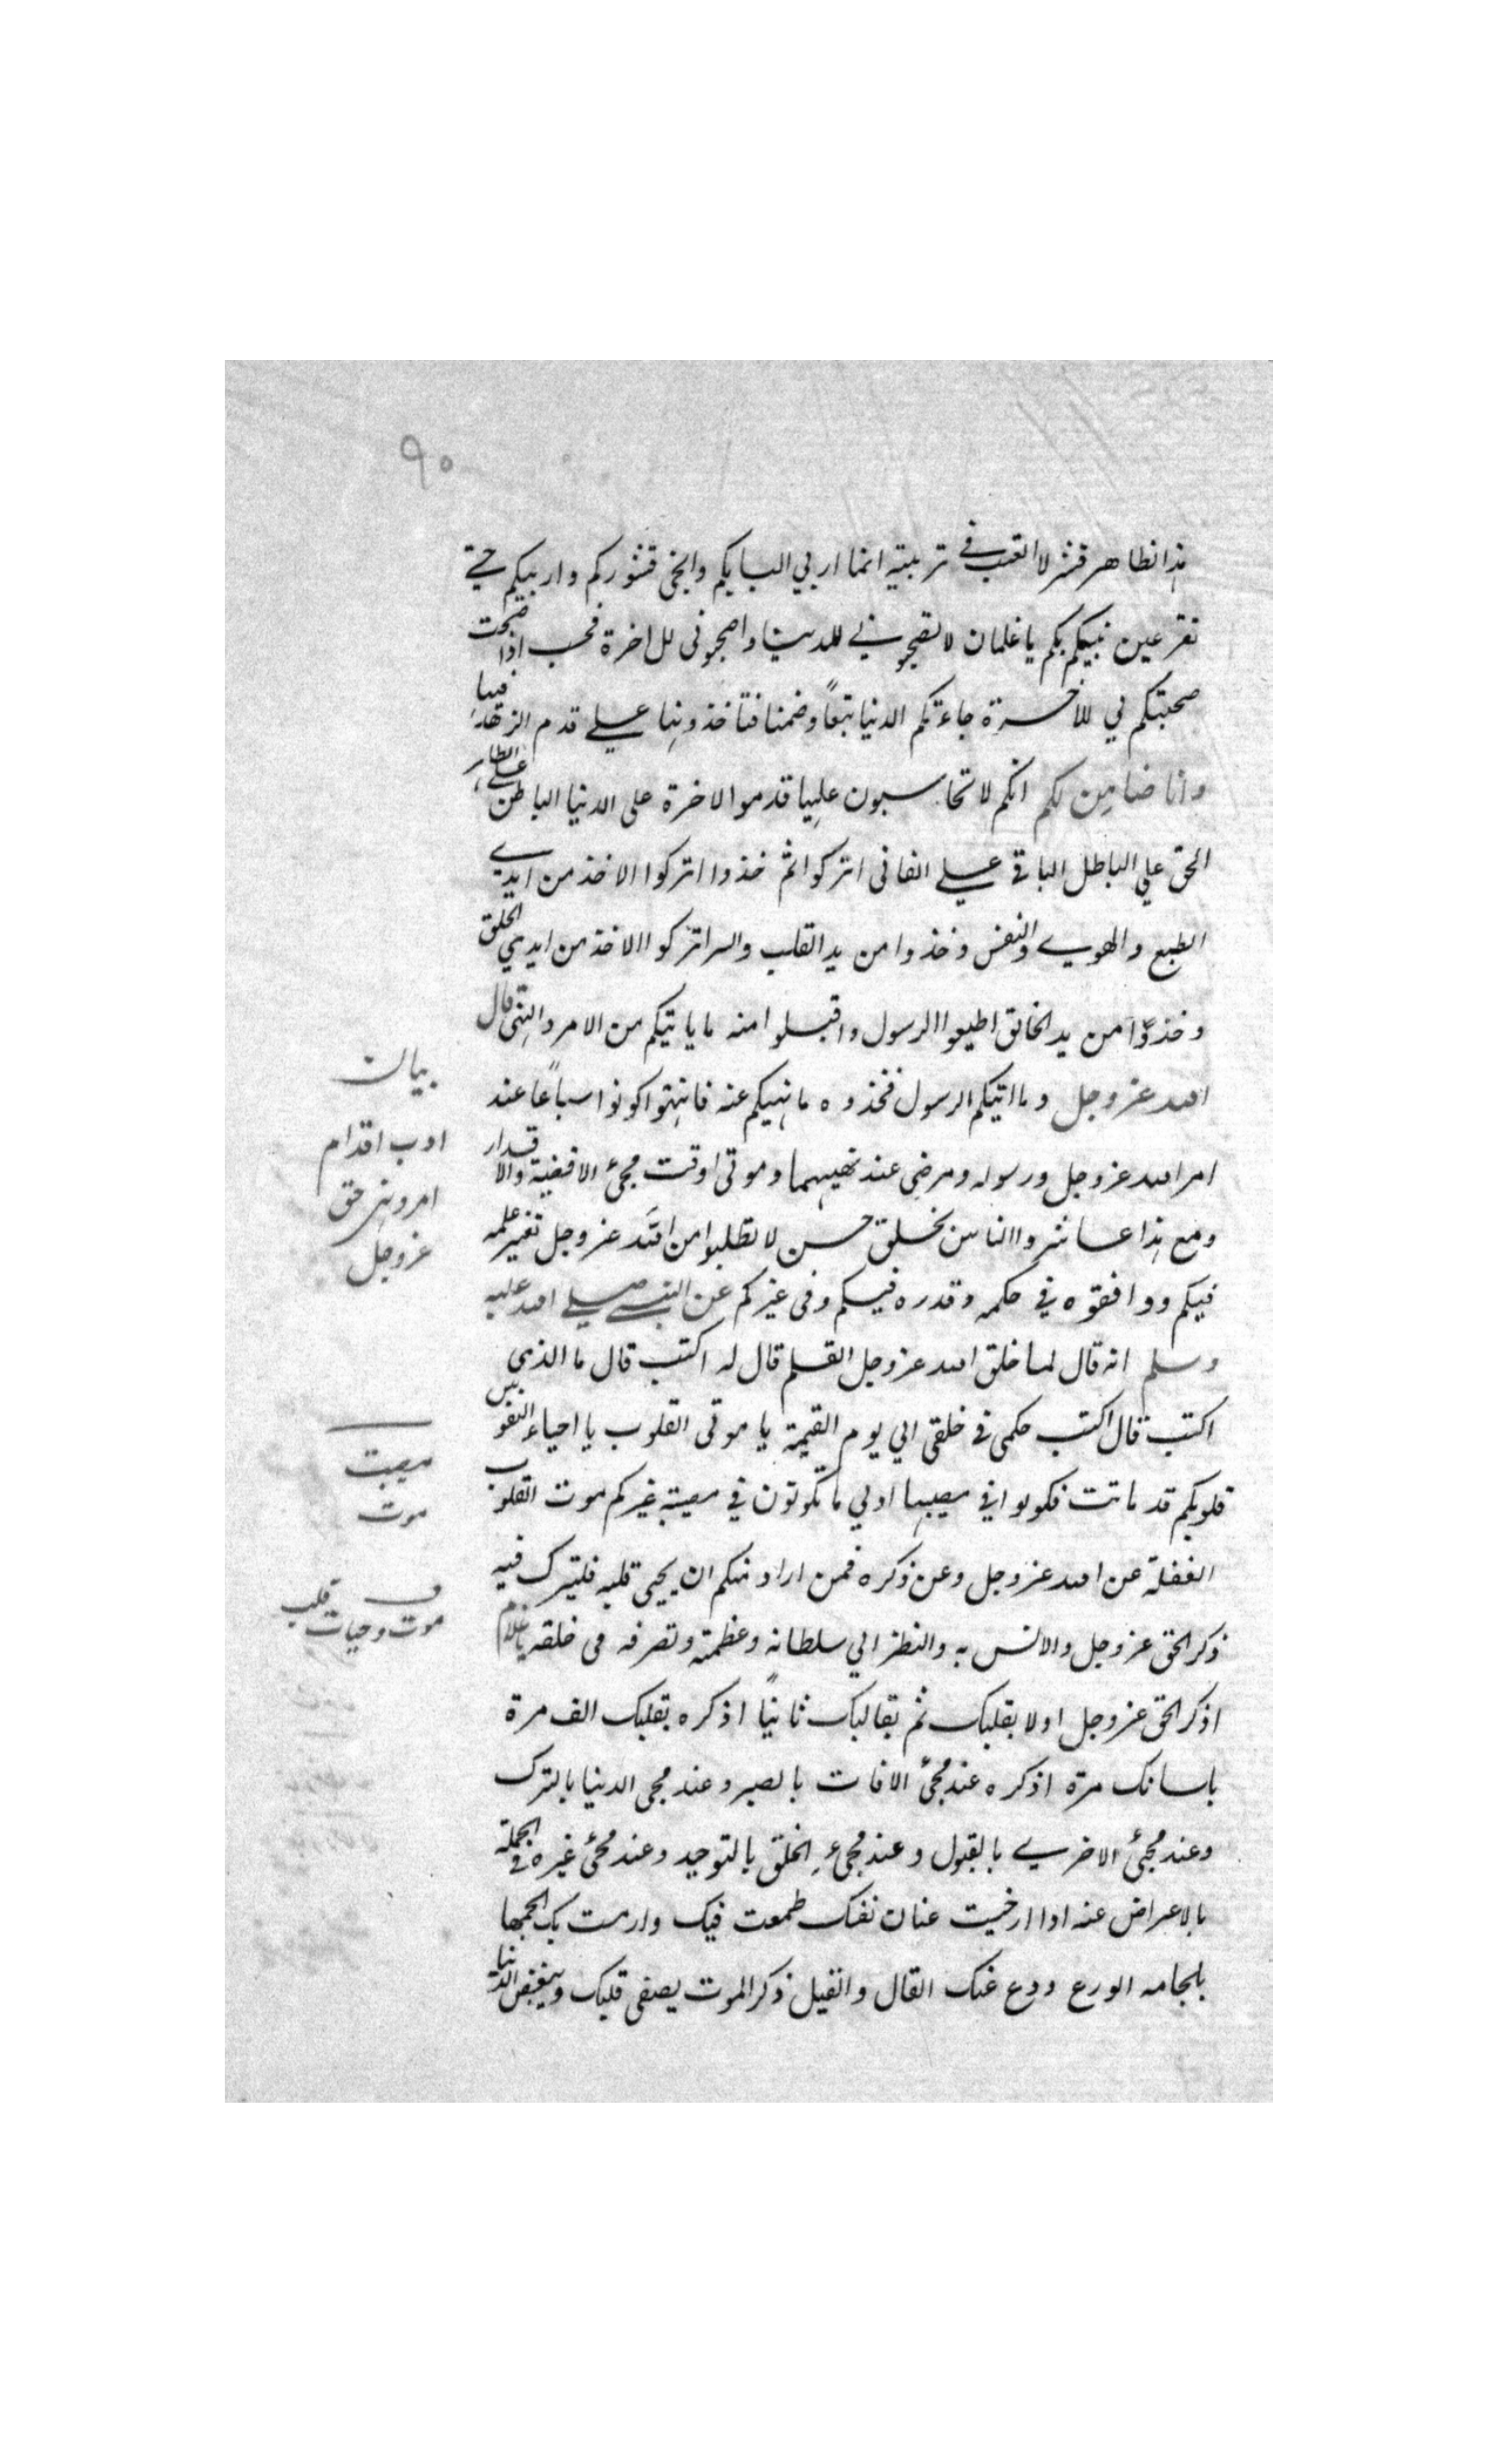 ٩٠
هذا الظاهر قشر لا اتعب في تربيته انما اربي البابكم وانحى قشوركم واربيكم حتى
تقر عين نبيكم بكم يا غلمان لا تصحبوني للدنيا واصحبوني للاخرة فحسب اذا صحت
صحبتكم لي للاخرة جاءتكم الدنيا تبعاً وضمنا فتاخذونها على قدم الزهد فيها
وانا ضامن لكم انكم لا تحاسبون عليها قدموا الاخرة على الدنيا الباطن على الظاهر
الحق علي الباطل الباقي على الفاني اتركوا ثم خذوا اتركوا الاخذ من ايدي
الطبع والهوى والنفس وخذوا من يد القلب والسر اتركوا الاخذ من ايدي الخلق
وخذوا من يد الخالق اطيعوا الرسول واقبلوا منه ما ياتيكم من الامر والنهي قال
الله عز وجل وما اتيكم الرسول فخذوه ما نهيكم عنه فانتهوا كونوا سباعاً عند
امر الله عز وجل ورسوله ومرضى عند نهيهما وموتى وقت مجئ الاقضية والاقدار
ومع هذا عاشروا الناس بخلق حسن لا تطلبوا من الله عز وجل تغير علمه
فيكم ووافقوه في حكمه وقدره فيكم وفى غيركم عن النبي صلى الله عليه
وسلم انه قال لما خلق الله عز وجل القلم قال له اكتب قال ما الذي
اكتب قال اكتب حكمى في خلقى الي يوم القيمة يا موتى القلوب يا احياء النفوس
قلوبكم قد ماتت فكونوا في مصيبتها اولي ما تكونون في مصيبة غيركم موت القلوب
الغفلة عن الله عز وجل وعن ذكره فمن اراد منكم ان يحيى قلبه فليترك فيه
ذكر الحق عز وجل والانس به والنظر الي سلطانه وعظمته وتصرفه فى خلقه يا غلام
اذكر الحق عز وجل اولا بقلبك ثم بقالبك ثانياً اذكره بقلبك الف مرة
بلسانك مرة اذكره عند مجئ الافات بالصبر وعند مجى الدنيا بالترك
وعند مجئ الاخرى بالقبول وعند مجئ الخلق بالتوحيد وعند مجئ غيره في الجملة
بالاعراض عنه اذا ارخيت عنان نفسك طمعت فيك وارمت بك الجمها
بلجامه الورع ودع عنك القال والقيل ذكر الموت يصفى قلبك ويبغض الدنيا
بيان
ادب اقدام
امر ونهى حق
عز وجل
مصيبت
موت
ف
موت وحيات قلب